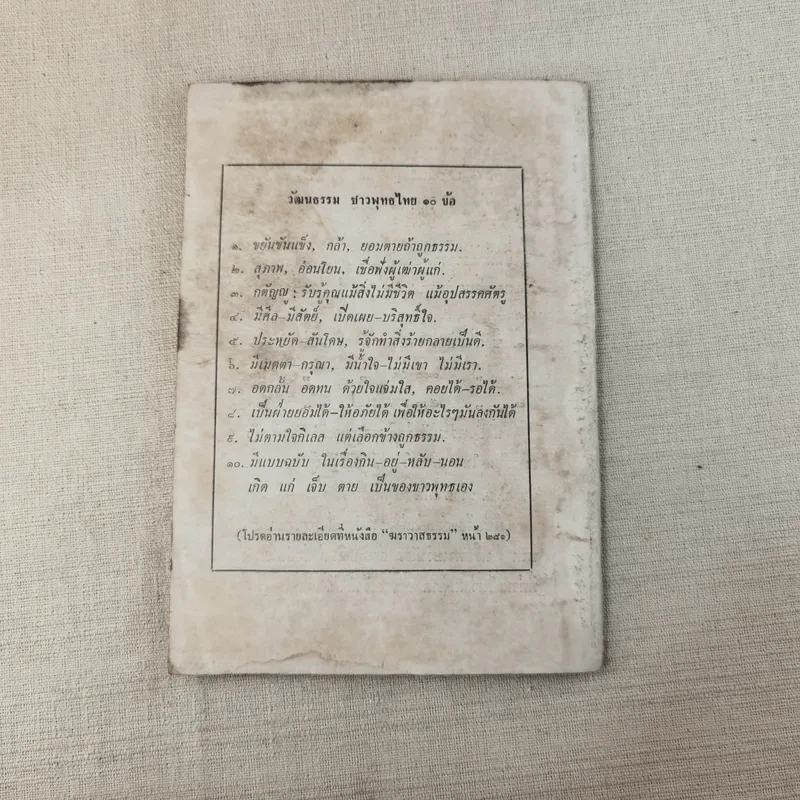 วัฒนธรรม ชาวพุทธไทย ๑๐ ข้อ
๑. ขยันขันแข็ง, กล้า, ยอมตายถ้าถูกธรรม.
๒. สุภาพ, อ่อนโยน, เชื่อฟังผู้เฒ่าผู้แก่.
๓. กตัญญู : รับรู้คุณแม้สิ่งไม่มีชีวิต แม้อุปสรรคศัตรู
๔. มีศีล-มีสัตย์, เปิดเผย-บริสุทธิ์ใจ.
๕. ประหยัด-สันโดษ, รู้จักทำสิ่งร้ายกลายเป็นดี.
๖. มีเมตตา-กรุณา, มีน้ำใจ-ไม่มีเขา ไม่มีเรา.
๗. อดกลั้น อดทน ด้วยใจแจ่มใส, คอยได้-รอได้.
๘. เป็นฝ่ายยอมได้-ให้อภัยได้ เพื่อให้อะไรๆมันลงกันได้
๙. ไม่ตามใจกิเลส แต่เลือกข้างถูกธรรม.
๑๐. มีแบบฉบับ ในเรื่องกิน-อยู่-หลับ-นอน
เกิด แก่ เจ็บ ตาย เป็นของชาวพุทธเอง
(โปรดอ่านรายละเอียดที่หนังสือ “ฆราวาสธรรม” หน้า ๒๕๑)